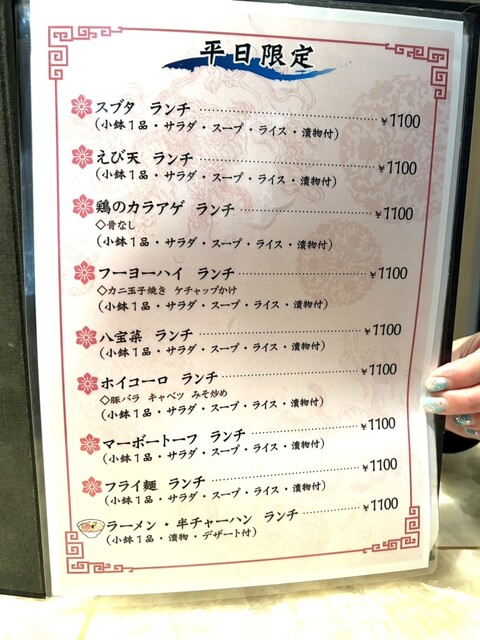 平日限定
スブタ ランチ ‥‥‥‥‥‥‥‥‥‥ ¥1100
(小鉢1品・サラダ・スープ・ライス・漬物付)
えび天 ランチ ‥‥‥‥‥‥‥‥‥‥ ¥1100
(小鉢1品・サラダ・スープ・ライス・漬物付)
鶏のカラアゲ ランチ ‥‥‥‥‥‥‥‥ ¥1100
◇骨なし
(小鉢1品・サラダ・スープ・ライス・漬物付)
フーヨーハイ ランチ ‥‥‥‥‥‥‥‥ ¥1100
◇カニ玉子焼き ケチャップかけ
(小鉢1品・サラダ・スープ・ライス・漬物付)
八宝菜 ランチ ‥‥‥‥‥‥‥‥‥‥ ¥1100
(小鉢1品・サラダ・スープ・ライス・漬物付)
ホイコーロ ランチ ‥‥‥‥‥‥‥‥‥ ¥1100
◇豚バラ キャベツ みそ炒め
(小鉢1品・サラダ・スープ・ライス・漬物付)
マーボートーフ ランチ ‥‥‥‥‥‥‥ ¥1100
(小鉢1品・サラダ・スープ・ライス・漬物付)
フライ麺 ランチ ‥‥‥‥‥‥‥‥‥ ¥1100
(小鉢1品・サラダ・スープ・ライス・漬物付)
ラーメン・半チャーハン ランチ ‥‥‥‥ ¥1100
(小鉢1品・漬物・デザート付)